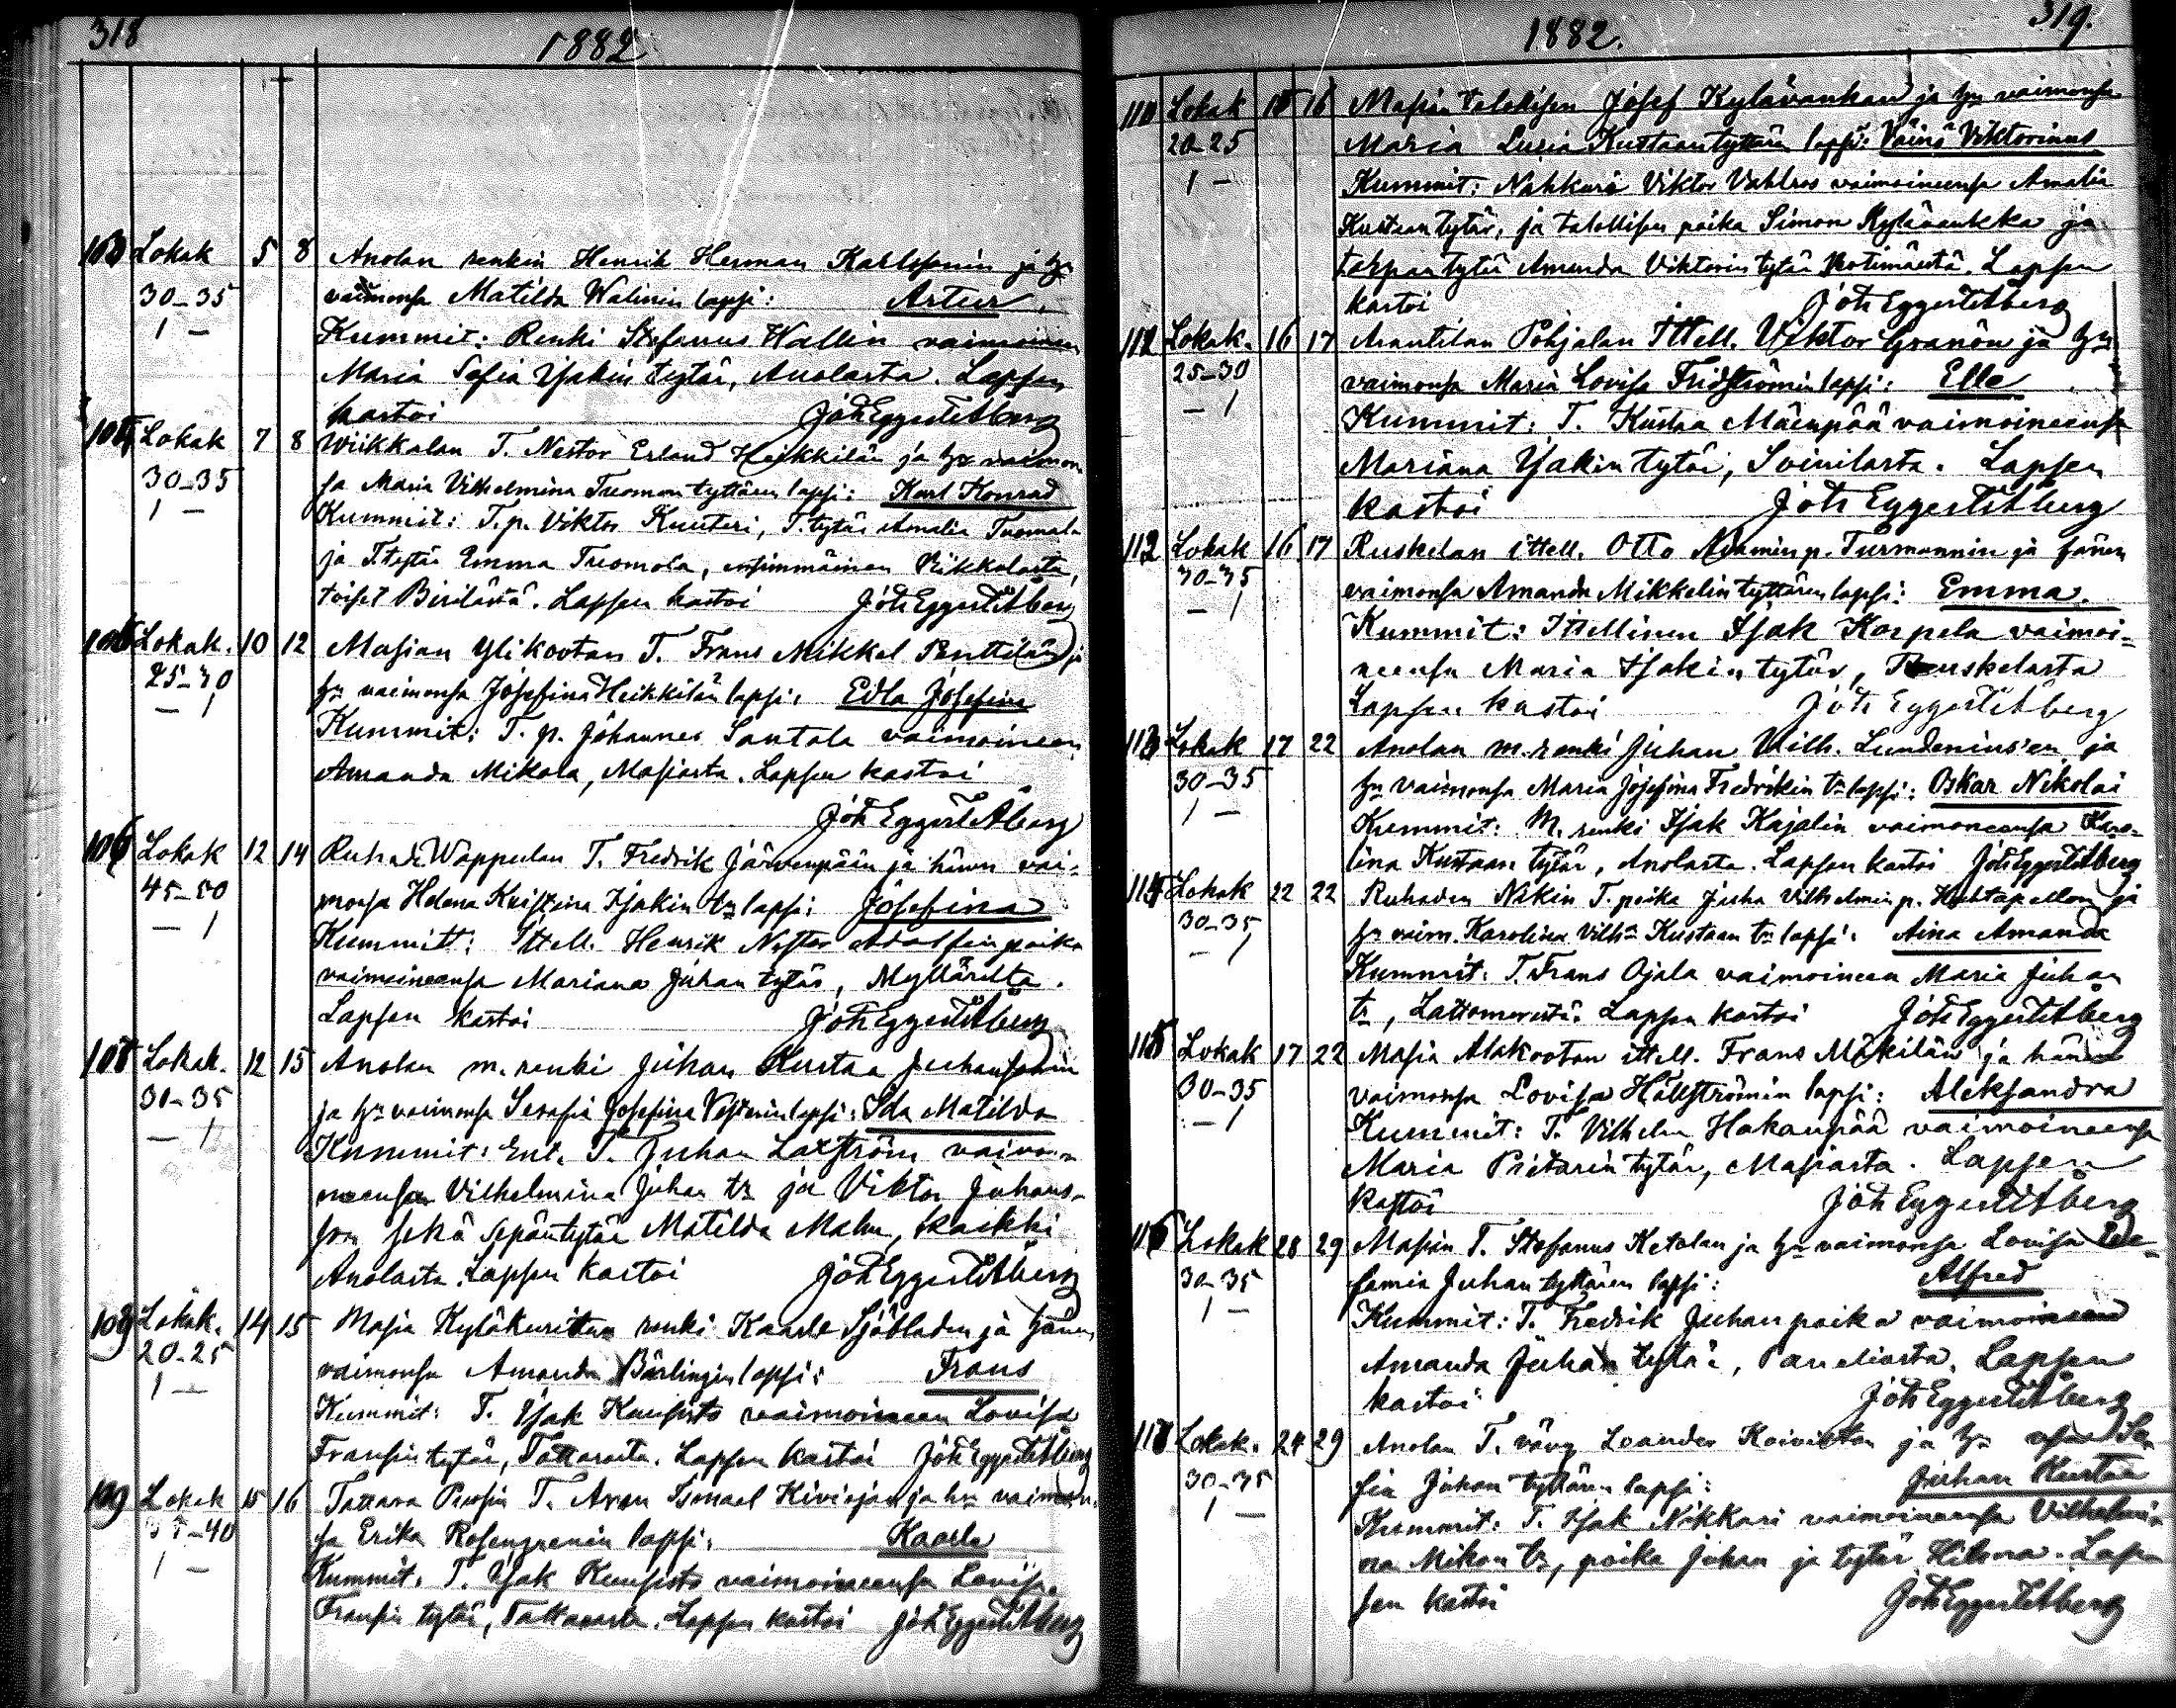 318
1882
103 Lokak 5 8 Anolan renkin Henrik Herman Karlssonin ja hn
30-35 vaimonsa Matilda Walinin lapsi: Artur.
1 — Kummit: Renki Stefanus Wallin vaimoineen
Maria Sofia Isakin tytär, Anolasta. Lapsen
kastoi Joh Eggert Åberg
104 Lokak 7 8 Wiikkalan T. Nestor Erland Heikkilän ja hn vaimon
30-35 sa Maria Vilhelmina Tuomaan tyttären lapsi: Karl Konrad
1 — Kummit: T.p. Viktor Kuuteri, T. tytär Amalia Tuomola
ja T. tytär Emma Tuomola, ensimmäinen Viikkalasta,
toiset Birilästä. Lapsen kastoi Joh Eggert Åberg
105 Lokak. 10 12 Masian Ylikootan T. Frans Mikkel Penttilän ja
25-30 hn vaimonsa Josefina Heikkilän lapsi: Edla Josefina
— 1 Kummit: T. p. Johannes Santala vaimoineen
Amanda Mikola, Masiasta. Lapsen kastoi
Joh Eggert Åberg
106 Lokak 12 14 Ruhade Wappulan T. Fredrik Järvenpään ja hänen vai-
45-50 monsa Helena Kristiina Isakin tr lapsi: Josefina
— 1 Kummit: Ittell. Henrik Nestor Adolfin poika
vaimoineensa Mariana Juhan tytär, Myllärilta.
Lapsen kastoi Joh Eggert Åberg
107 Lokak. 12 15 Anolan m. renki Juhan Kustaa Juhanssonin
30-35 ja hn vaimonsa Serafia Josefina lapsi: Ida Matilda
— 1 Kummit: Ent. T. Juhan Laxström vaimoi-
neensa Vilhelmina Juhan tr ja Viktor Juhans-
son sekä sepäntytär Matilda Malm, kaikki
Anolasta. Lapsen kastoi Joh Eggert Åberg
108 Lokak. 14 15 Masia Kyläkuritun renki Kaarle Sjöbladen ja hänen
20-25 vaimonsa Amanda Bärlingin lapsi: Frans
1 — Kummit: T. Isak Kuusisto vaimoineen Lovisa
Fransin tytär, Tattarasta. Lapsen kastoi Joh Eggert Åberg
109 Lokak 15 16 Tattara Ismael Kiviojan ja hn vaimon-
35-40 sa Erika Rosengrenin lapsi: Kaarle
1 — Kummit: T. Isak Kuusisto vaimoineensa Lovisa
Fransin tytär, Tattarasta. Lapsen kastoi Joh Eggert Åberg
1882.
319.
110 Lokak 15 16 Masian talollisen Josef Kylävankan ja hn vaimonsa
20-25 Maria Lusia Kustaan tyttären lapsi: Väinö Viktorinus
1 — Kummit: Nahkuri Viktor Vahlros vaimoineensa Amalia
Kustaan tytär, ja talollisen poika Simon Kylävankka ja
torpan tytär Amanda Viktorin tytär Kotimäestä. Lapsen
kastoi Joh Eggert Åberg
111 Lokak. 16 17 Anantilan Pohjalan Ittell. Viktor Granön ja hn
25-30 vaimonsa Maria Lovisa Fridströmin lapsi: Elle
— 1 Kummit: T. Kustaa Mäenpää vaimoineensa
Mariana Isakin tytär, Soinilasta. Lapsen
kastoi Joh Eggert Åberg
112 Lokak 16 17 Ruskelan ittell. Otto p. Turmannin ja hänen
30-35 vaimonsa Amanda Mikkelin tyttären lapsi: Emma.
— 1 Kummit: Ittellinen Isak Korpela vaimoi-
neensa Maria Isakin tytär, Ruskelasta
Lapsen kastoi Joh Eggert Åberg
113 Lokak 17 22 Anolan m. renki Juhan Vilh. Lundenius'en ja
30-35 hn vaimonsa Maria Josefina Fredrikin tr lapsi: Oskar Nikolai
1 — Kummit: M. renki Isak Kajalin vaimoneensa Karo-
lina Kustaan tytär, Anolasta. Lapsen kastoi Joh Eggert Åberg
114 Lokak 22 22 Ruhaden Nikin T. poika Juha Vilhelmin p. Kuhtapellon ja
30-35 hn vaim. Karolina Vilh Kustaan tr lapsi: Aina Amanda
— 1 Kummit: T. Frans Ojala vaimoineen Maria Juhan
tr, Lattomerestä. Lapsen kastoi Joh Eggert Åberg
115 Lokak 17 22 Masia Alakootan ittell. Frans Mäkilän ja hänen
30-35 vaimonsa Lovisa Hällströmin lapsi: Aleksandra
— 1 Kummit: T. Vilhelm Hakanpää vaimoineensa
Maria Pietarin tytär, Masiasta. Lapsen
kastoi Joh Eggert Åberg
116 Lokak 28 29 Masian T. Stefanus Ketolan ja hn vaimonsa Lovisa
30-35 Juhan tyttären lapsi: Alfred
1 — Kummit: T. Fredrik Juhan poika vaimoineen
Amanda Juhan tytär, Paneliasta. Lapsen
kastoi Joh Eggert Åberg
117 Lokak. 24 29 Anolan T. vävy Leander Koiviston ja hn
30-35 fia Juhan tyttären lapsi: Juhan Kustaa
1 — Kummit: T. Isak Nikkari vaimoineensa Vilhelmi-
na Mikon tr, poika Juhan ja tytär Hilma. Lap
sen kastoi Joh Eggert Åberg